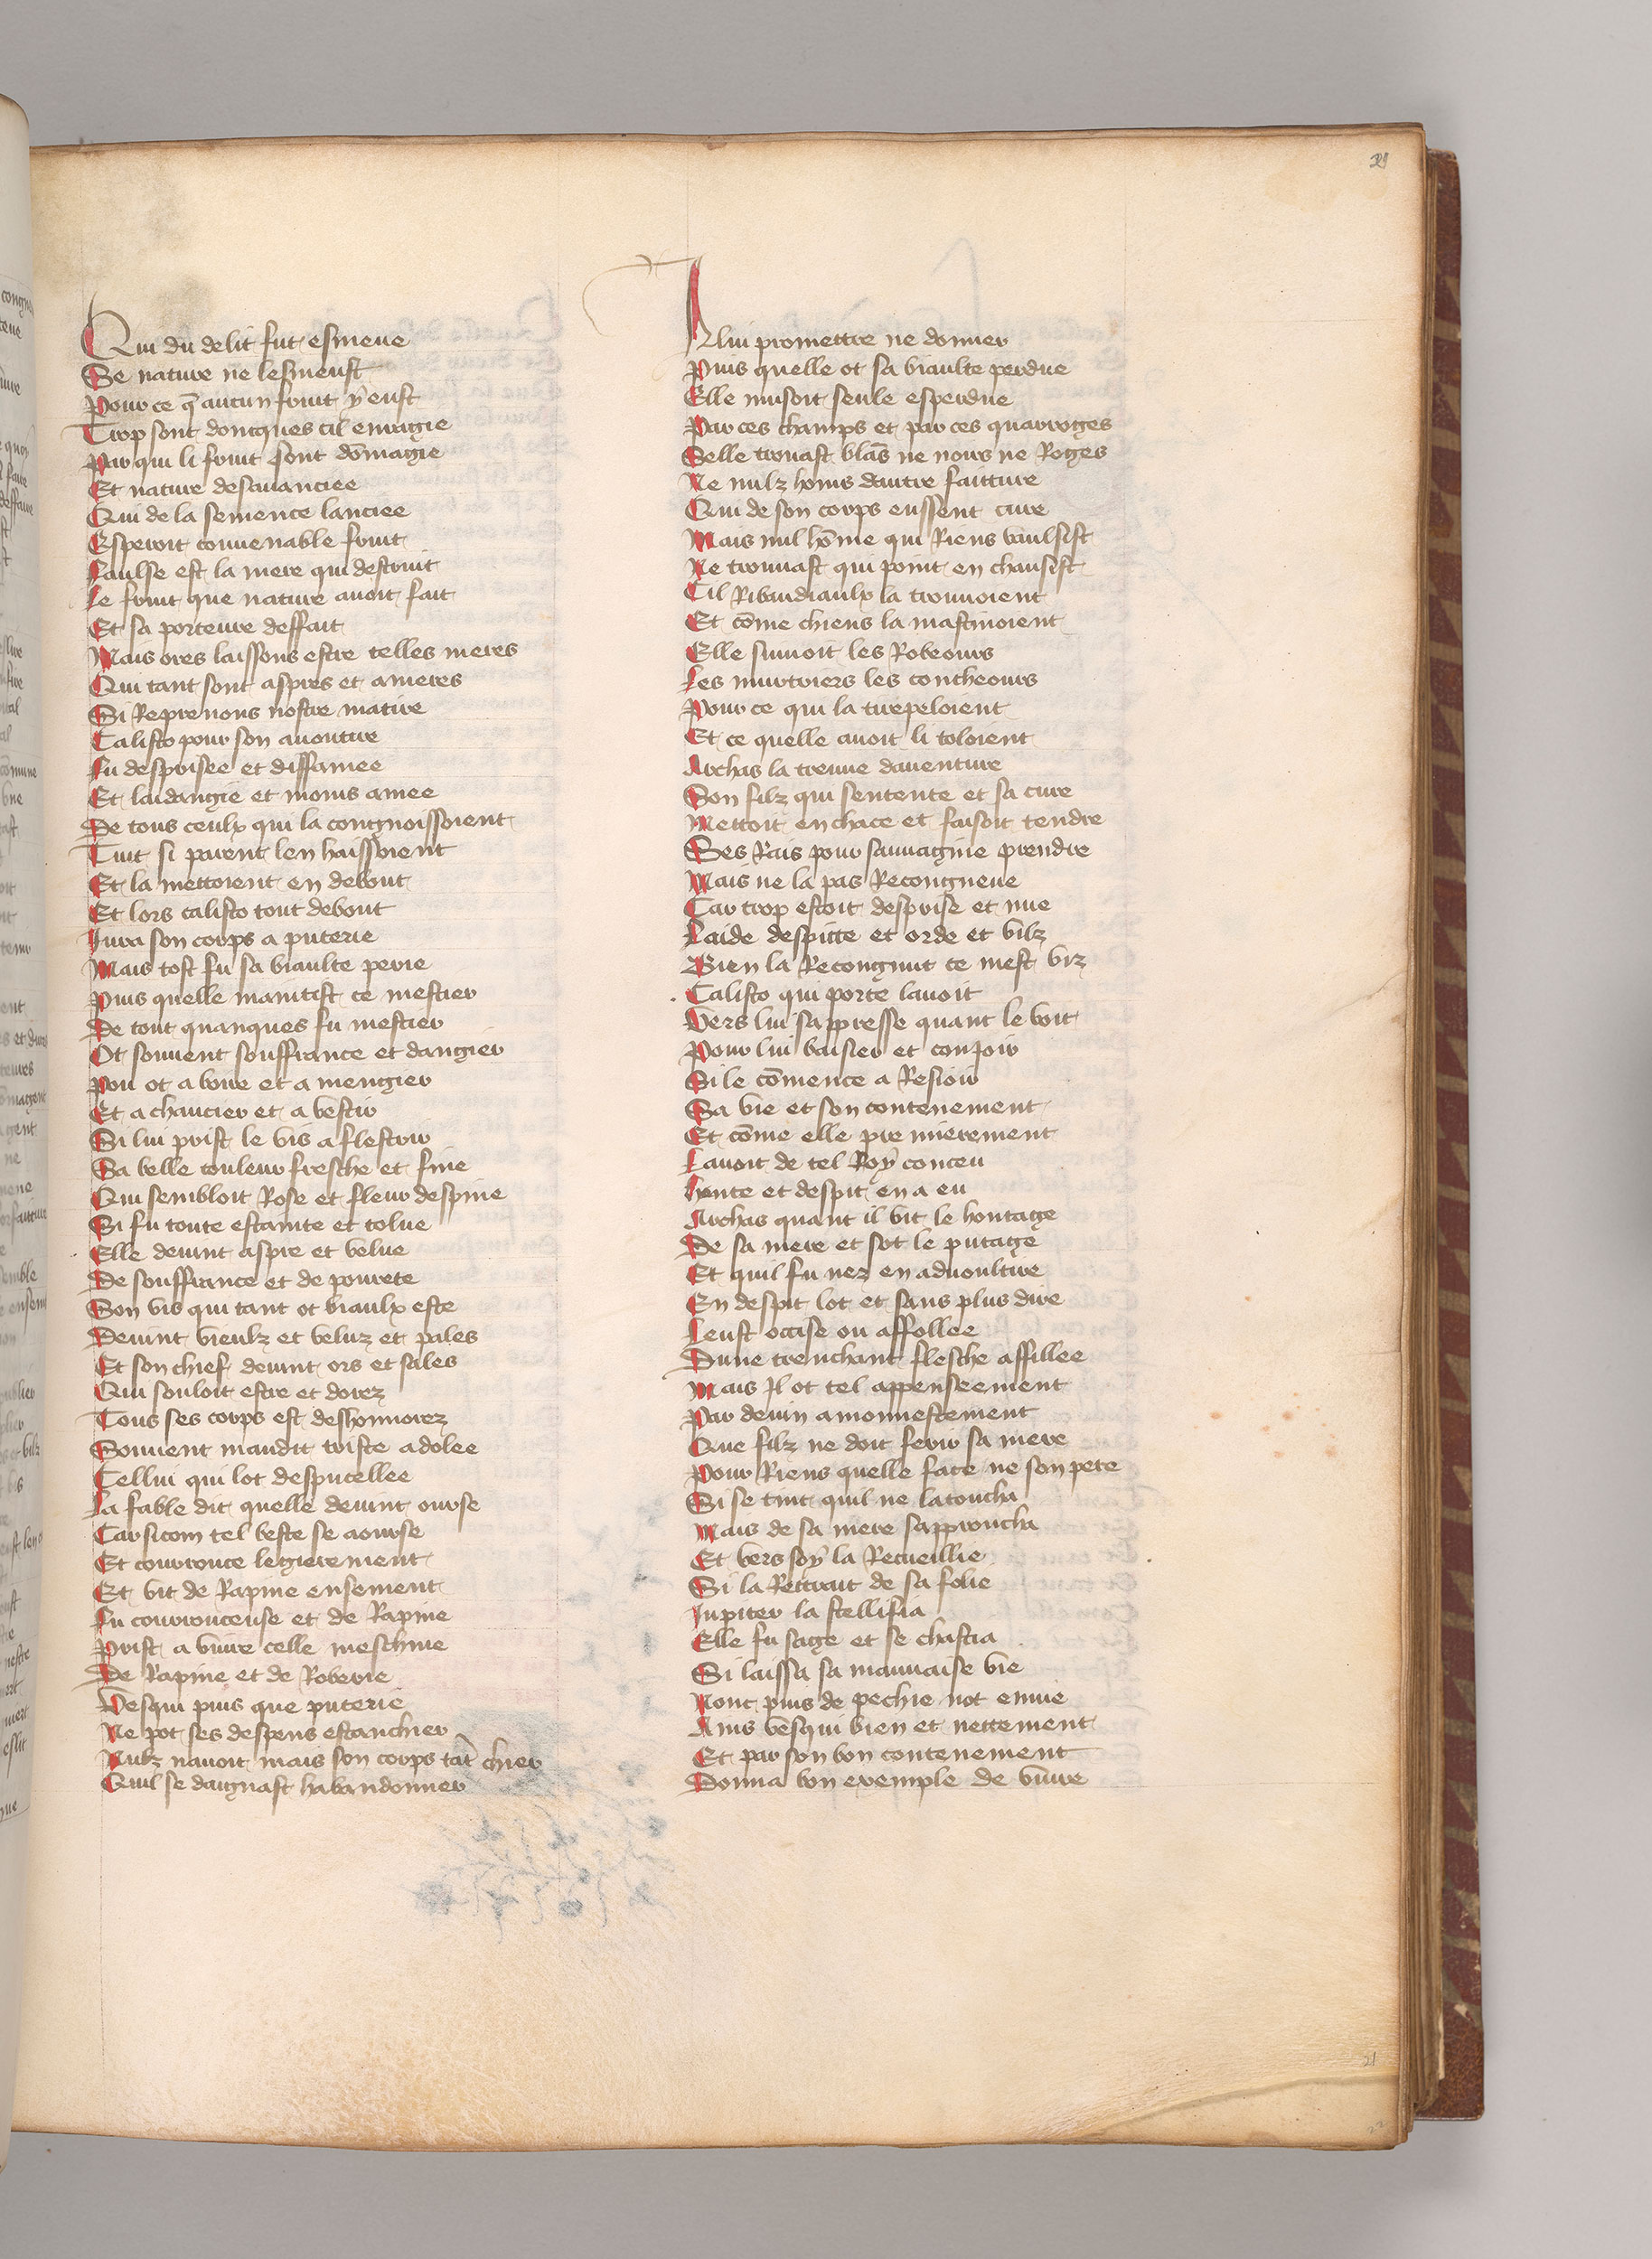 21
Qui du delit fut esmeue
Se nature ne lesmeust
Pour ce q̃ aucun fruit ỹ eust
Trop sont doncques cil enragie
Par qui li fruit sont dōmagie
Et nature desauanciee
Qui de la semence lanciee
Esperoit conuenable fruit
Faulse est la mere qui destruit
Le fruit que nature auoit fait
Et sa porteure deffait
Mais ores laissons estre telles meres
Qui tant sont aspres et ameres
Si Reprenons nostre matire
Calisto pour son auoutire
Fu desprisee et diffamee
Et laidangie et moins amee
De tous ceulx qui la congnoissoient
Tuit si parent len haissoient
Et la mettoient en debout
Et lors calisto tout debout
Liura son corps a puterie
Mais tost fu sa biaulte perie
Puis quelle maintist ce mestier
De tout quanques fu mestier
Ot souuent souffrance et dangier
Pou ot a boire et a mengier
Et a chaucier et a vestir
Si lui prist le vis a flestrir
Sa belle couleur fresche et fine
Qui sembloit Rose et fleur despine
Si fu toute estainte et tolue
Elle deuint aspre et velue
De souffrance et de pourete
Son vis qui tant ot biaulx este
Deuint vieulz et veluz et pales
Et son chief deuint ors et sales
Qui souloit estre et dorez
Tous ses corps est deshonnorez
Souuent maudit triste adolee
Cellui qui lot despucellee
La fable dit quelle deuint ourse
Car sicom tel beste se aourse
Et courrouce legierement
Et vit de Rapine ensement
Fu courrouceuse et de Rapine
Prist a viure celle meschine
De Rapine et de Roberie
Vesqui puis que puterie
Ne pot ses despens estanchier
Nulz nauoit mais son corps tāt chier
Quil se daignast habandonner
A lui promettre ne donner
Puis quelle ot sa biaulte perdue
Elle musoit seule esperdue
Par ces champs et par ces quarroges
Selle trouast blās ne noirs ne Roges
Ne nulz homs dautre faitture
Qui de son corps eussent cure
Mais nul hōme qui Riens vaulsist
Ne trouuast qui point en chausist
Cil Ribaudiaulx la trouuoient
Et cōme chiens la mastinoient
Elle suiuoit les Robeours
Les murtriers les concheours
Pour ce qui la turepeloient
Et ce quelle auoit li toloient
Archas la treuue dauenture
Son filz qui sentente et sa cure
Mettoit en chace et faisoit tendre
Ses Rais pour sauuagine prendre
Mais ne la pas Recongneue
Car trop estoit desprise et nue
Laide despitte et orde et vilz
Bien la Recongnut ce mest viz
Calisto qui porte lauoit
Vers lui sappresse quant le voit
Pour lui baisier et conjoir
Si le cōmence a Resioir
Sa vie et son contenement
Et cōme elle premierement
Lauoit de tel Roỹ conceu
Honte et despit en a eu
Archas quant il vit le hontage
De sa mere et sot le putage
Et quil fu nez en aduoultire
En despit lot et sans plus dire
Leust occise ou affollee
Dune trenchant flesche affillee
Mais Il ot tel appenseement
Par deuin amonnestement
Que filz ne doit ferir sa mere
Pour Riens quelle face ne son pere
Si se tint quil ne latoucha
Mais de sa mere sapproucha
Et vers soỹ la Recueillie
Si la Rettrait de sa folie
Jupiter la stellifia
Elle fu sage et se chastia
Si laissa sa mauuaise vie
Nonc puis de pechie not enuie
Ains vesqui bien et nettement
Et par son bon contenement
Donna bon exemple de viure
21